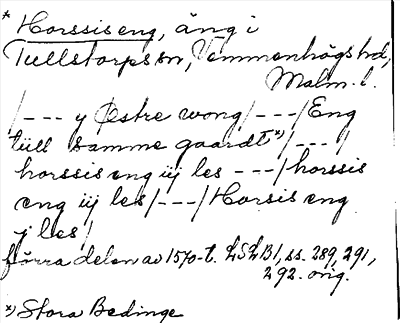 * Horssiseng, äng i
Tullstorps sn, Vemmenhögs hd,
Malm. l.
/--- y Østre wong/---/Eng
till samme gaardt *)/---/
horssis eng iij les ---/horssis
eng iij les/---/Horsis eng
j les/
förra delen av 1570-t. LSLB1, ss. 289, 291,
292. orig.
*) Stora Bedinge